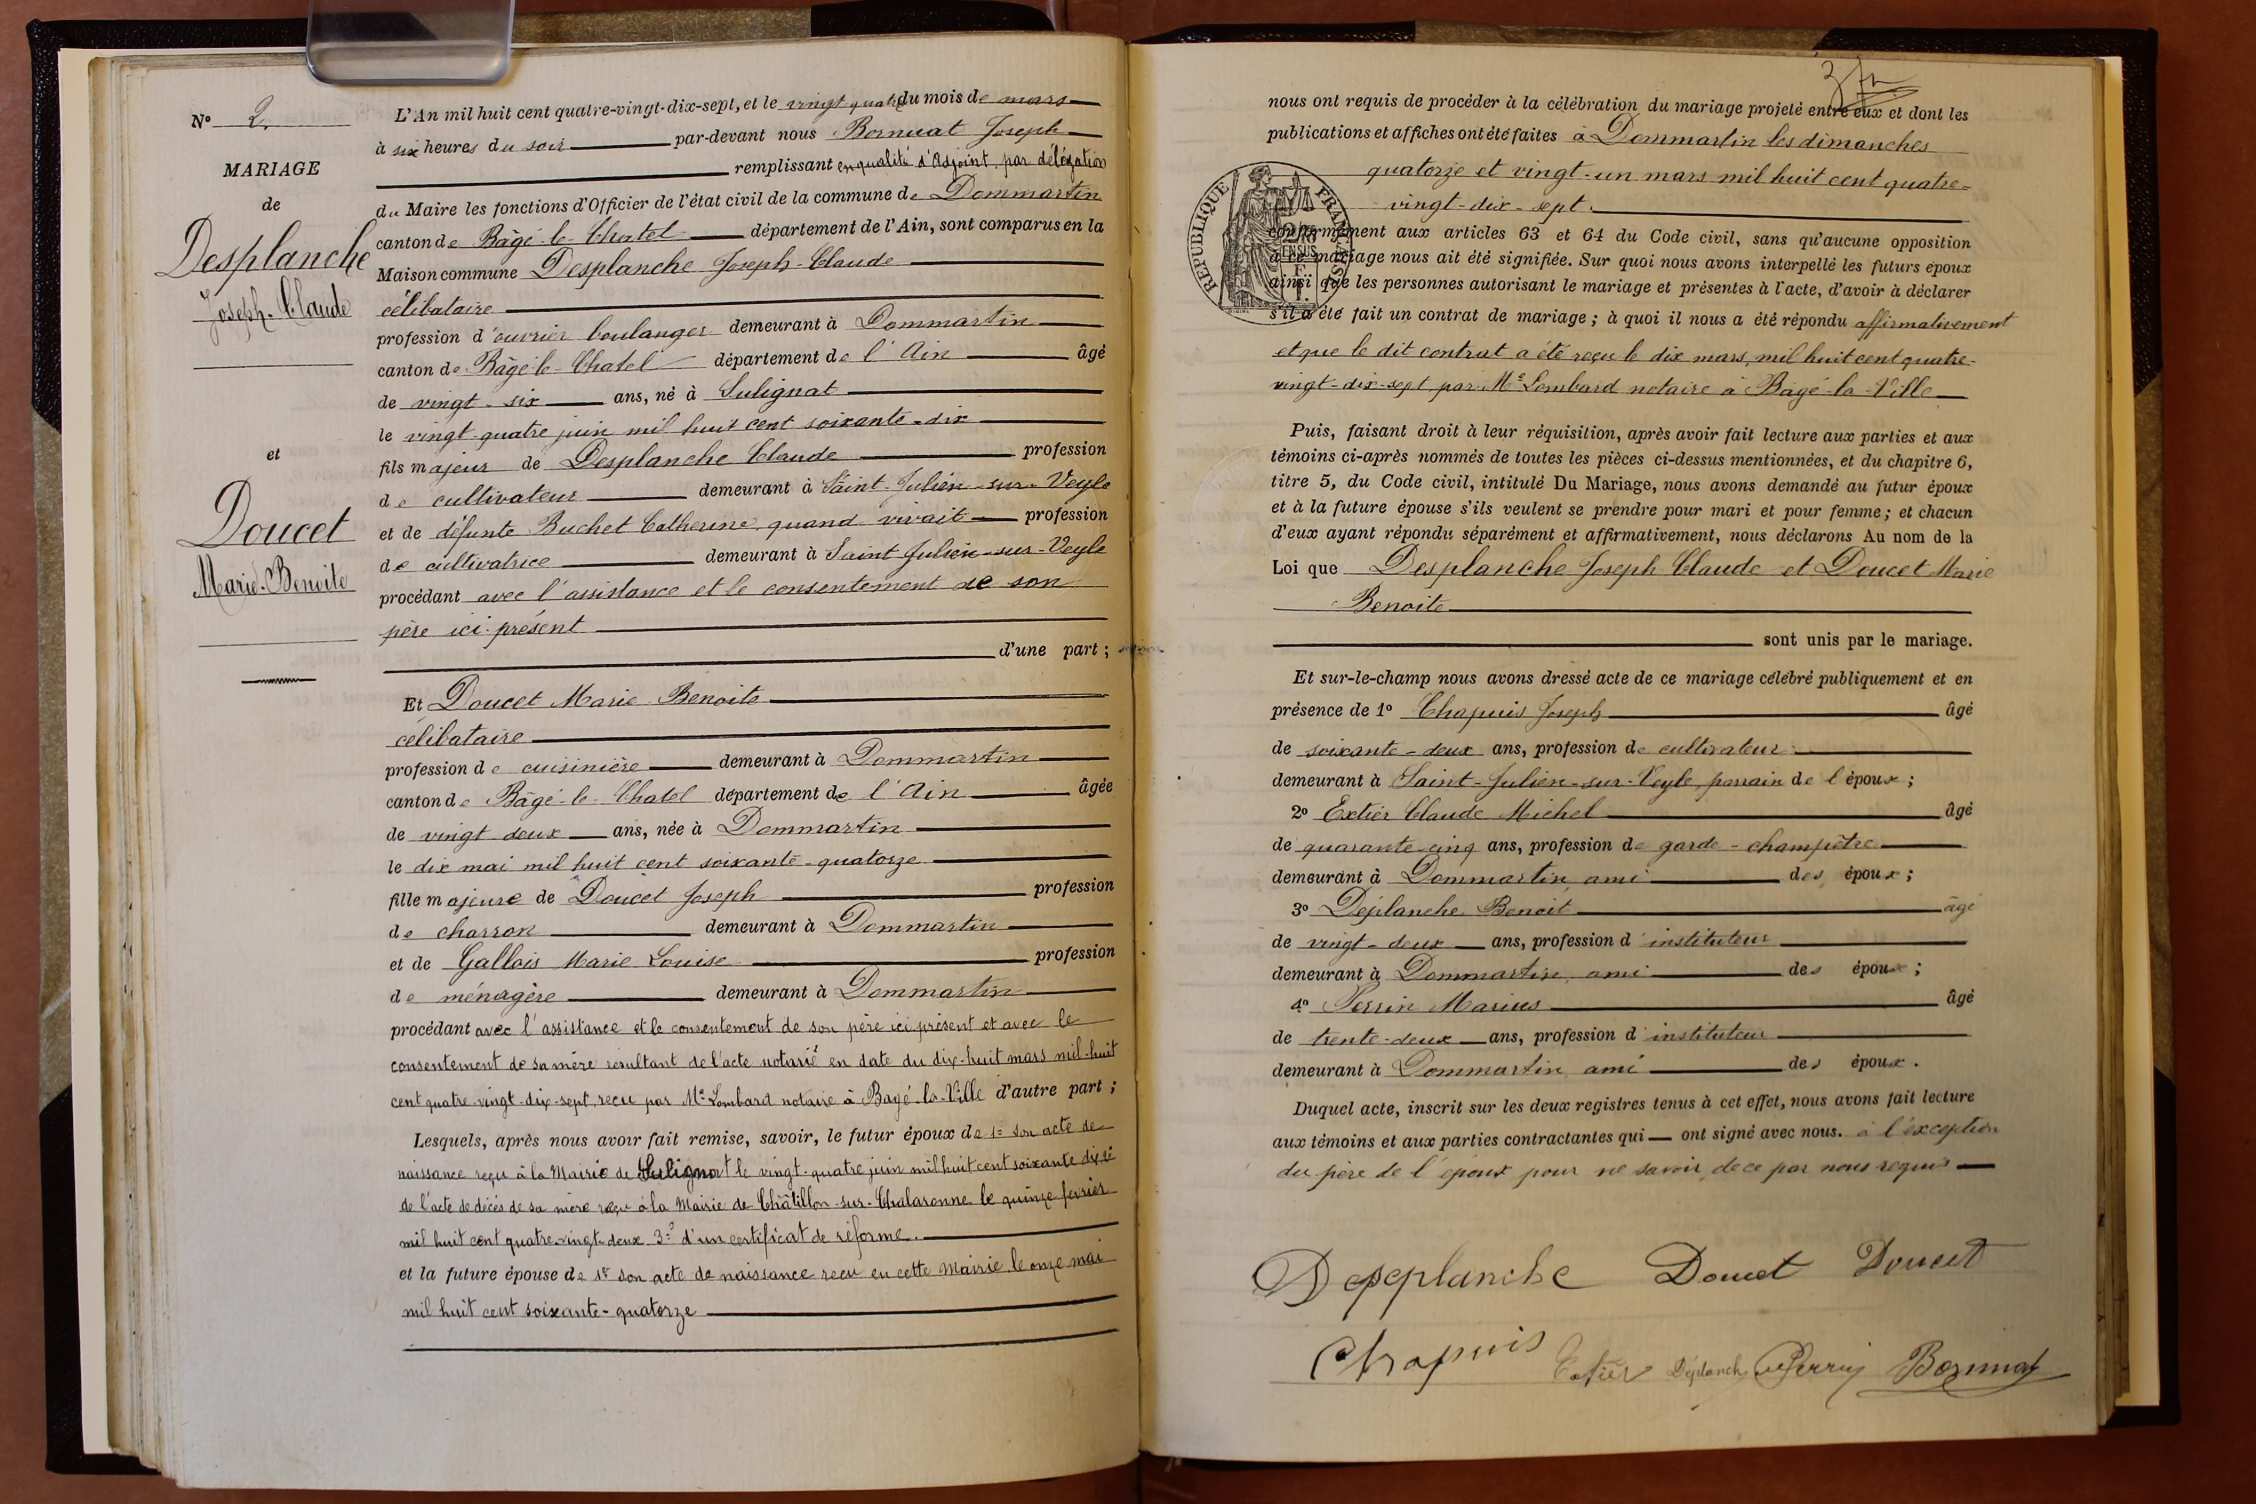 N° 2.
MARIAGE
de
Desplanche
Joseph-Claude
et
Doucet
Marie-Benoite
L'An mil huit cent quatre-vingt-dix-sept, et le vingt quatre du mois de mars
à six heures du soir par-devant nous Bornuat Joseph
remplissant en qualité d'Adjoint, par délégation
du Maire les fonctions d'Officier de l'état civil de la commune de Dommartin
canton de Bâgé-le-Chatel département de l'Ain, sont comparus en la
Maison commune Desplanche Joseph-Claude
célibataire
profession d'ouvrier boulanger demeurant à Dommartin
canton de Bâgé-le-Chatel département de l'Ain âgé
de vingt-six ans, né à Sulignat
le vingt-quatre juin mil huit cent soixante-dix
fils majeur de Desplanche Claude profession
de cultivateur demeurant à Saint-Julien-sur-Veyle
et de défunte Buchet Catherine, quand vivait profession
de cultivatrice demeurant à Saint-Julien-sur-Veyle
procédant avec l'assistance et le consentement de son
père ici présent
d'une part ;
Et Doucet Marie Benoite
célibataire
profession de cuisinière demeurant à Dommartin
canton de Bâgé-le-Chatel département de l'Ain âgée
de vingt deux ans, née à Dommartin
le dix mai mil huit cent soixante-quatorze
fille majeure de Doucet Joseph profession
de charron demeurant à Dommartin
et de Gallois Marie Louise profession
de ménagère demeurant à Dommartin
procédant avec l'assistance et le consentement de son père ici présent et avec le
consentement de sa mère résultant de l'acte notarié en date du dix-huit mars mil-huit
cent quatre-vingt-dix-sept, reçu par Me Lombard notaire à Bagé-la-Ville d'autre part ;
Lesquels, après nous avoir fait remise, savoir, le futur époux de 1° son acte de
naissance reçu à la Mairie de Sulignat le vingt-quatre juin mil huit cent soixante dix 2°
de l'acte de décès de sa mère reçu à la Mairie de Châtillon-sur-Chalaronne le quinze février
mil huit cent quatre-vingt-deux 3° d'un certificat de réforme.
et la future épouse de 1° son acte de naissance reçu en cette Mairie le onze mai
mil huit cent soixante-quatorze
nous ont requis de procéder à la célébration du mariage projeté entre eux et dont les
publications et affiches ont été faites à Dommartin les dimanches
quatorze et vingt-un mars mil huit cent quatre-
vingt-dix-sept.
REPUBLIQUE FRANÇAISE
conformément aux articles 63 et 64 du Code civil, sans qu'aucune opposition
à ce mariage nous ait été signifiée. Sur quoi nous avons interpellé les futurs époux
ainsi que les personnes autorisant le mariage et présentes à l'acte, d'avoir à déclarer
s'il a été fait un contrat de mariage ; à quoi il nous a été répondu affirmativement
et que le dit contrat a été reçu le dix mars, mil huit cent quatre-
vingt-dix-sept par Me Lombard notaire à Bagé-la-Ville
Puis, faisant droit à leur réquisition, après avoir fait lecture aux parties et aux
témoins ci-après nommés de toutes les pièces ci-dessus mentionnées, et du chapitre 6,
titre 5, du Code civil, intitulé Du Mariage, nous avons demandé au futur époux
et à la future épouse s'ils veulent se prendre pour mari et pour femme ; et chacun
d'eux ayant répondu séparément et affirmativement, nous déclarons Au nom de la
Loi que Desplanche Joseph Claude et Doucet Marie
Benoite
sont unis par le mariage.
Et sur-le-champ nous avons dressé acte de ce mariage célébré publiquement et en
présence de 1° Chapuis Joseph âgé
de soixante-deux ans, profession de cultivateur
demeurant à Saint-Julien-sur-Veyle, parrain de l'époux ;
2° Extier Claude Michel âgé
de quarante-cinq ans, profession de garde-champêtre
demeurant à Dommartin, ami des époux ;
3° Déplanche Benoit âgé
de vingt-deux ans, profession d'instituteur
demeurant à Dommartin, ami des époux ;
4° Perrin Marius âgé
de trente-deux ans, profession d'instituteur
demeurant à Dommartin, ami des époux.
Duquel acte, inscrit sur les deux registres tenus à cet effet, nous avons fait lecture
aux témoins et aux parties contractantes qui ont signé avec nous. à l'exception
du père de l'époux pour ne savoir, de ce par nous requis
Desplanche Doucet Doucet
Chapuis Extier Déplanche Perrin Bornuat